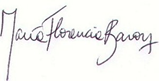 María Florencia Baron